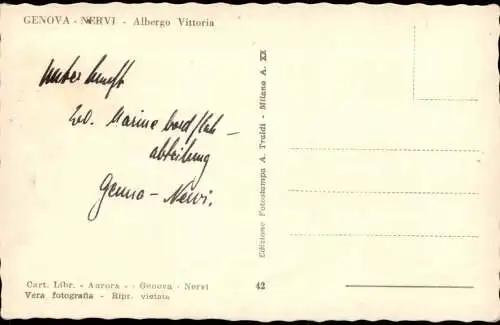 GENOVA - NERVI - Albergo Vittoria
Unterkunft
Marine bord/lak-
abteilung
Genua - Nervi.
Edizione Fotostampa A. Traldi - Milano A. XX
Cart. Libr. - Aurora - - Genova - Nervi
Vera fotografia - Ripr. vietata
42